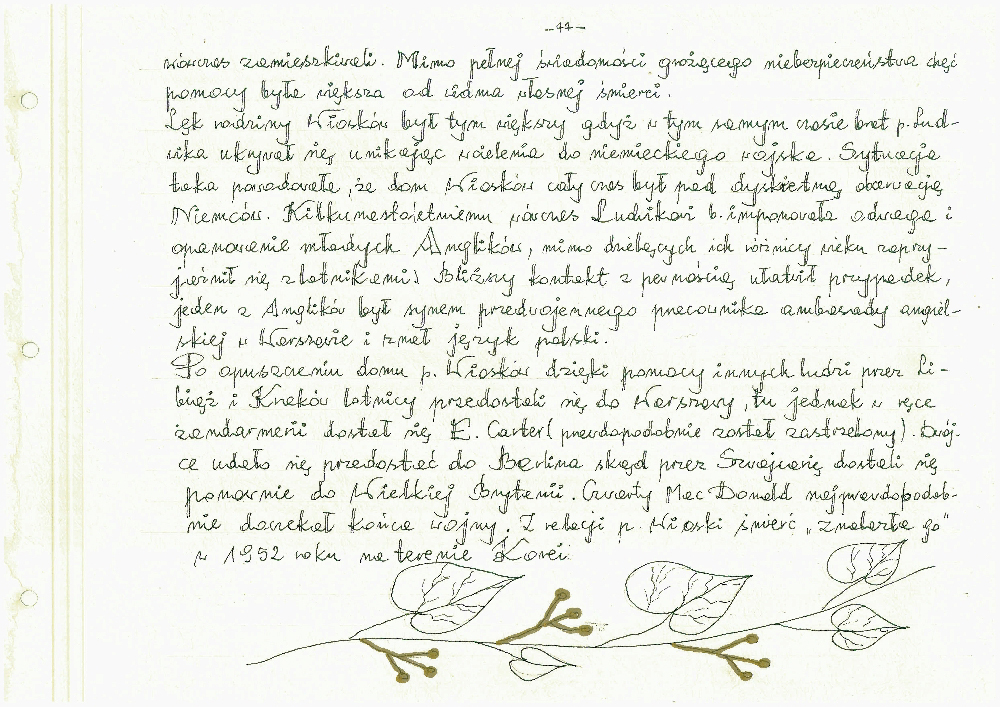 -44-
wówczas zamieszkiwali. Mimo pełnej świadomości grożącego niebezpieczeństwa chęć
pomocy była większa od widma własnej śmierci.
Lęk rodziny Wiosków był tym większy gdyż w tym samym czasie brat p. Lud-
wika ukrywał się unikając wcielenia do niemieckiego wojska. Sytuacja
taka powodowała, że dom Wiosków cały czas był pod dyskretną obserwacją
Niemców. Kilkunastoletniemu wówczas Ludwikowi b. imponowała odwaga i
opanowanie młodych Anglików, mimo dzielących ich różnicy wieku zaprzy-
jaźnił się z lotnikami. Bliższy kontakt z pewnością ułatwił przypadek,
jeden z Anglików był synem przedwojennego pracownika ambasady angiel-
skiej w Warszawie i znał język polski.
Po opuszczeniu domu p. Wiosków dzięki pomocy innych ludzi przez Li-
biąż i Kraków lotnicy przedostali się do Warszawy, tu jednak w ręce
żandarmerii dostał się E. Carter (prawdopodobnie został zastrzelony). Dwój-
ce udało się przedostać do Berlina skąd przez Szwajcarię dostali się
ponownie do Wielkiej Brytanii. Czwarty Mac Donald najprawdopodob-
nie doczekał końca wojny. Z relacji p. Wioski śmierć „znalazła go"
w 1952 roku na terenie Korei.